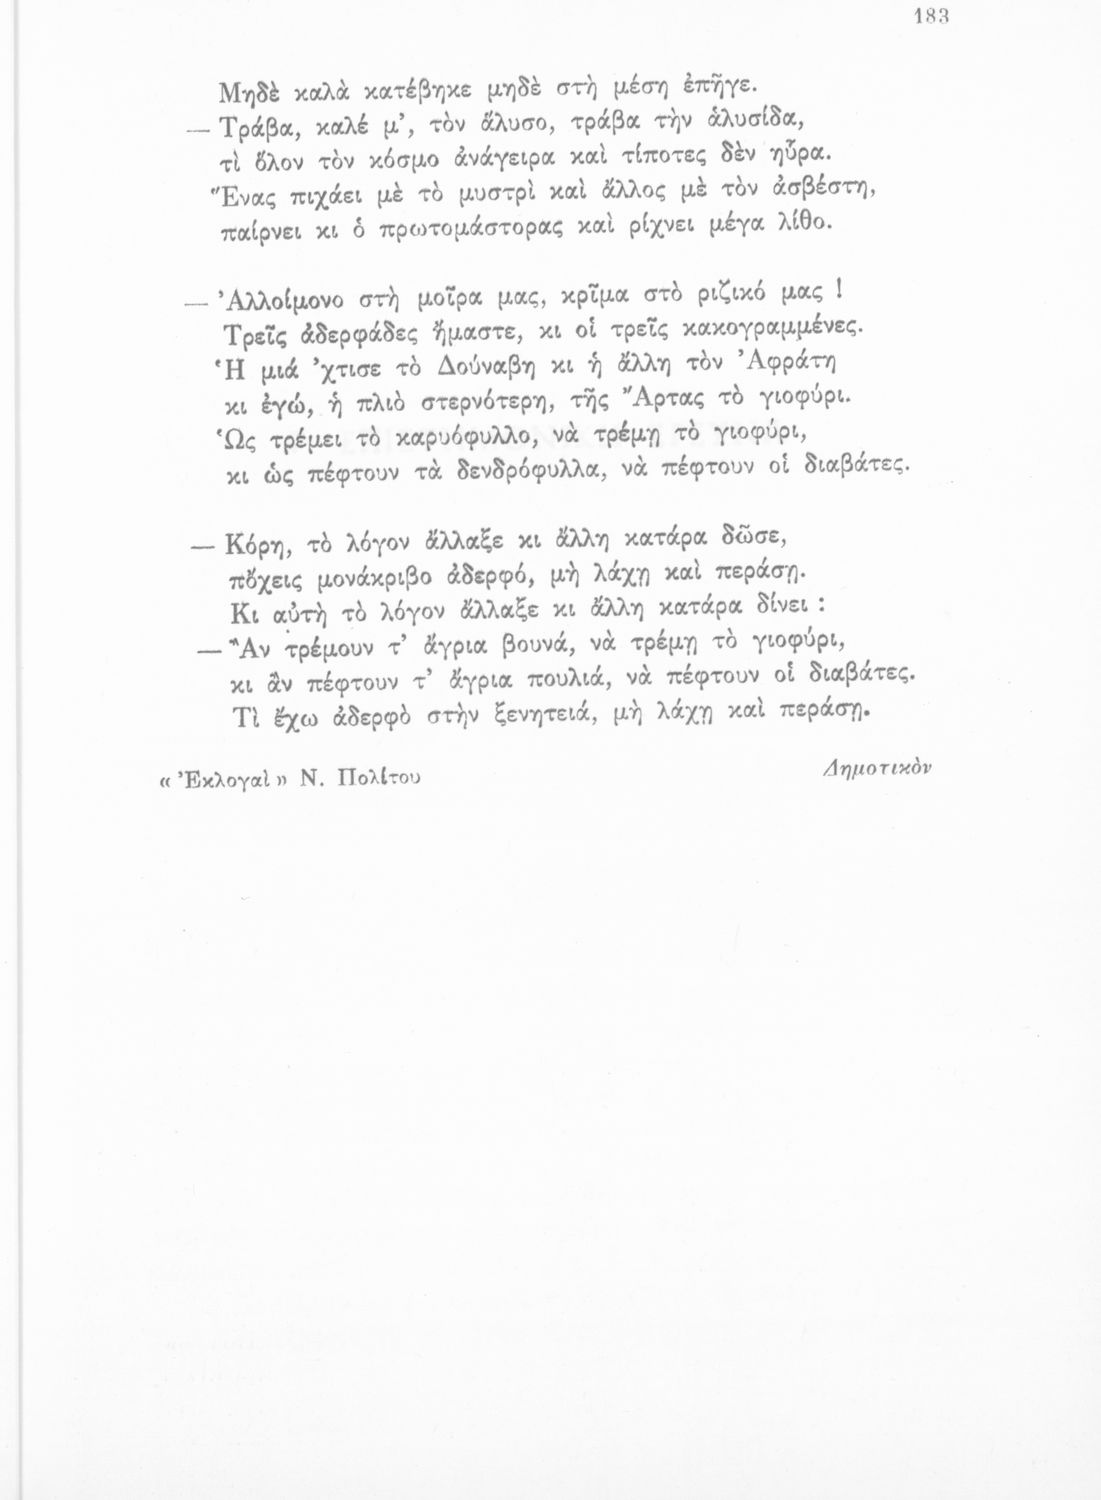 183
Μηδὲ καλὰ κατέβηκε μηδὲ στὴ μέση ἐπῆγε.
— Τράβα, καλέ μ’, τὸν ἅλυσο, τράβα τὴν ἁλυσίδα,
τὶ ὅλον τὸν κόσμο ἀνάγειρα καὶ τίποτες δὲν ηὗρα.
Ἕνας πιχάει μὲ τὸ μυστρὶ καὶ ἄλλος μὲ τὸν ἀσβέστη,
παίρνει κι ὁ πρωτομάστορας καὶ ρίχνει μέγα λίθο.
— Ἀλλοίμονο στὴ μοῖρα μας, κρῖμα στὸ ριζικό μας !
Τρεῖς ἀδερφάδες ἤμαστε, κι οἱ τρεῖς κακογραμμένες.
Ἡ μιά ’χτισε τὸ Δούναβη κι ἡ ἄλλη τὸν Ἀφράτη
κι ἐγώ, ἡ πλιὸ στερνότερη, τῆς Ἄρτας τὸ γιοφύρι.
Ὡς τρέμει τὸ καρυόφυλλο, νὰ τρέμῃ τὸ γιοφύρι,
κι ὡς πέφτουν τὰ δενδρόφυλλα, νὰ πέφτουν οἱ διαβάτες.
— Κόρη, τὸ λόγον ἄλλαξε κι ἄλλη κατάρα δῶσε,
πὄχεις μονάκριβο ἀδερφό, μὴ λάχῃ καὶ περάσῃ.
Κι αὐτὴ τὸ λόγον ἄλλαξε κι ἄλλη κατάρα δίνει :
— Ἂν τρέμουν τ’ ἄγρια βουνά, νὰ τρέμῃ τὸ γιοφύρι,
κι ἂν πέφτουν τ’ ἄγρια πουλιά, νὰ πέφτουν οἱ διαβάτες.
Τὶ ἔχω ἀδερφὸ στὴν ξενητειά, μὴ λάχῃ καὶ περάσῃ.
« Ἐκλογαὶ » Ν. Πολίτου
Δημοτικὸν